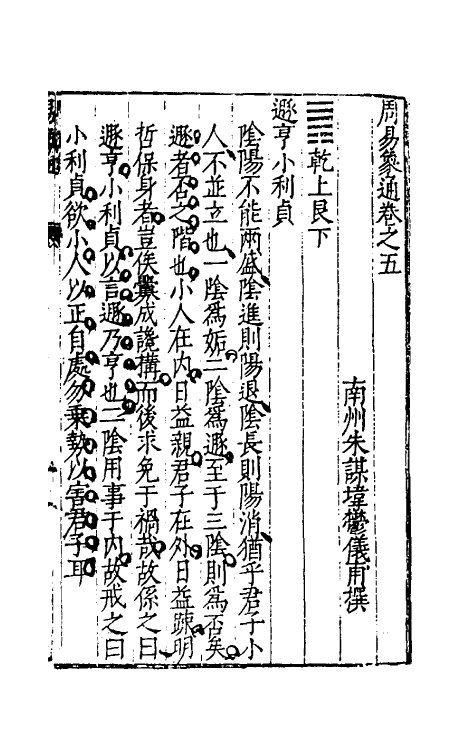 周易象通卷之五
南州朱謀㙔鬱儀甫撰
乾上艮下
遯亨小利貞
陰陽不能兩盛陰進則陽退陰長則陽消猶乎君子小
人不並立也一陰爲姤二陰爲遯至于三陰則爲否矣
遯者否之階也小人在内日益親君子在外日益踈明
哲保身者豈俟釁成讒構而後求免于禍哉故係之曰
遯亨小利貞以言遯乃亨也二陰用事于内故戒之曰
小利貞欲小人以正自處勿乗執以害君子耳